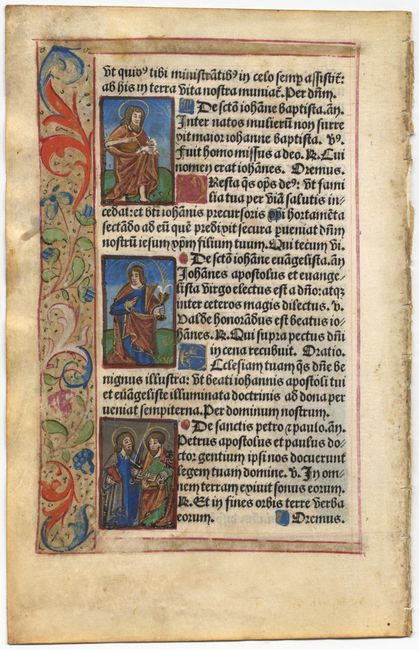 vt quiꝰ tibi ministrātibꝰ in celo semp assistit̄:
ab his in terra vita nostra muniat̄. Per dn̄m.
De sctō iohāne baptista. an̄.
Inter natos mulierū non surre
xit maior iohanne baptista. v̄.
Fuit homo missus a deo. R. Cui
nomen erat iohānes. Oremus.
Presta q̄s op̄s deꝰ: vt fami
lia tua per viā salutis in-
cedat: et bt̄i iohānis precursoris xp̄i hortamēta
sectādo ad eū quē predixit secura pueniat dn̄m
nostrū iesum xp̄m filium tuum. Qui tecum vi.
De sctō iohāne euāgelista. an̄.
Johānes apostolus et euange-
lista virgo electus est a dn̄o: atqꝫ
inter ceteros magis dilectus. v.
Valde honorādus est beatus io-
hānes. R. Qui supra pectus dn̄i
in cena recubuit. Oratio.
Ecclesiam tuam q̄s dn̄e be
nignus illustra: vt beati iohannis apostōli tui
et euāgeliste illuminata doctrinis ad dona per
ueniat sempiterna. Per dominum nostrum.
De sanctis petro et paulo. an̄.
Petrus apostolus et paulus do-
ctor gentium ipsi nos docuerunt
legem tuam domine. v. In om-
nem terram exiuit sonus eorum.
R. Et in fines orbis terre verba
eorum. Oremus.